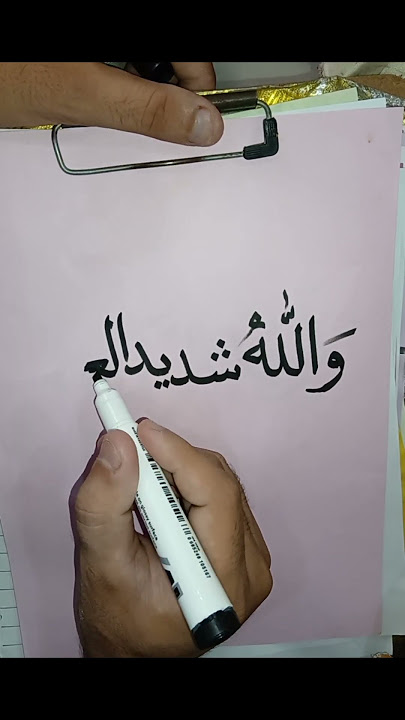 وَاللّٰهُ شديد الع